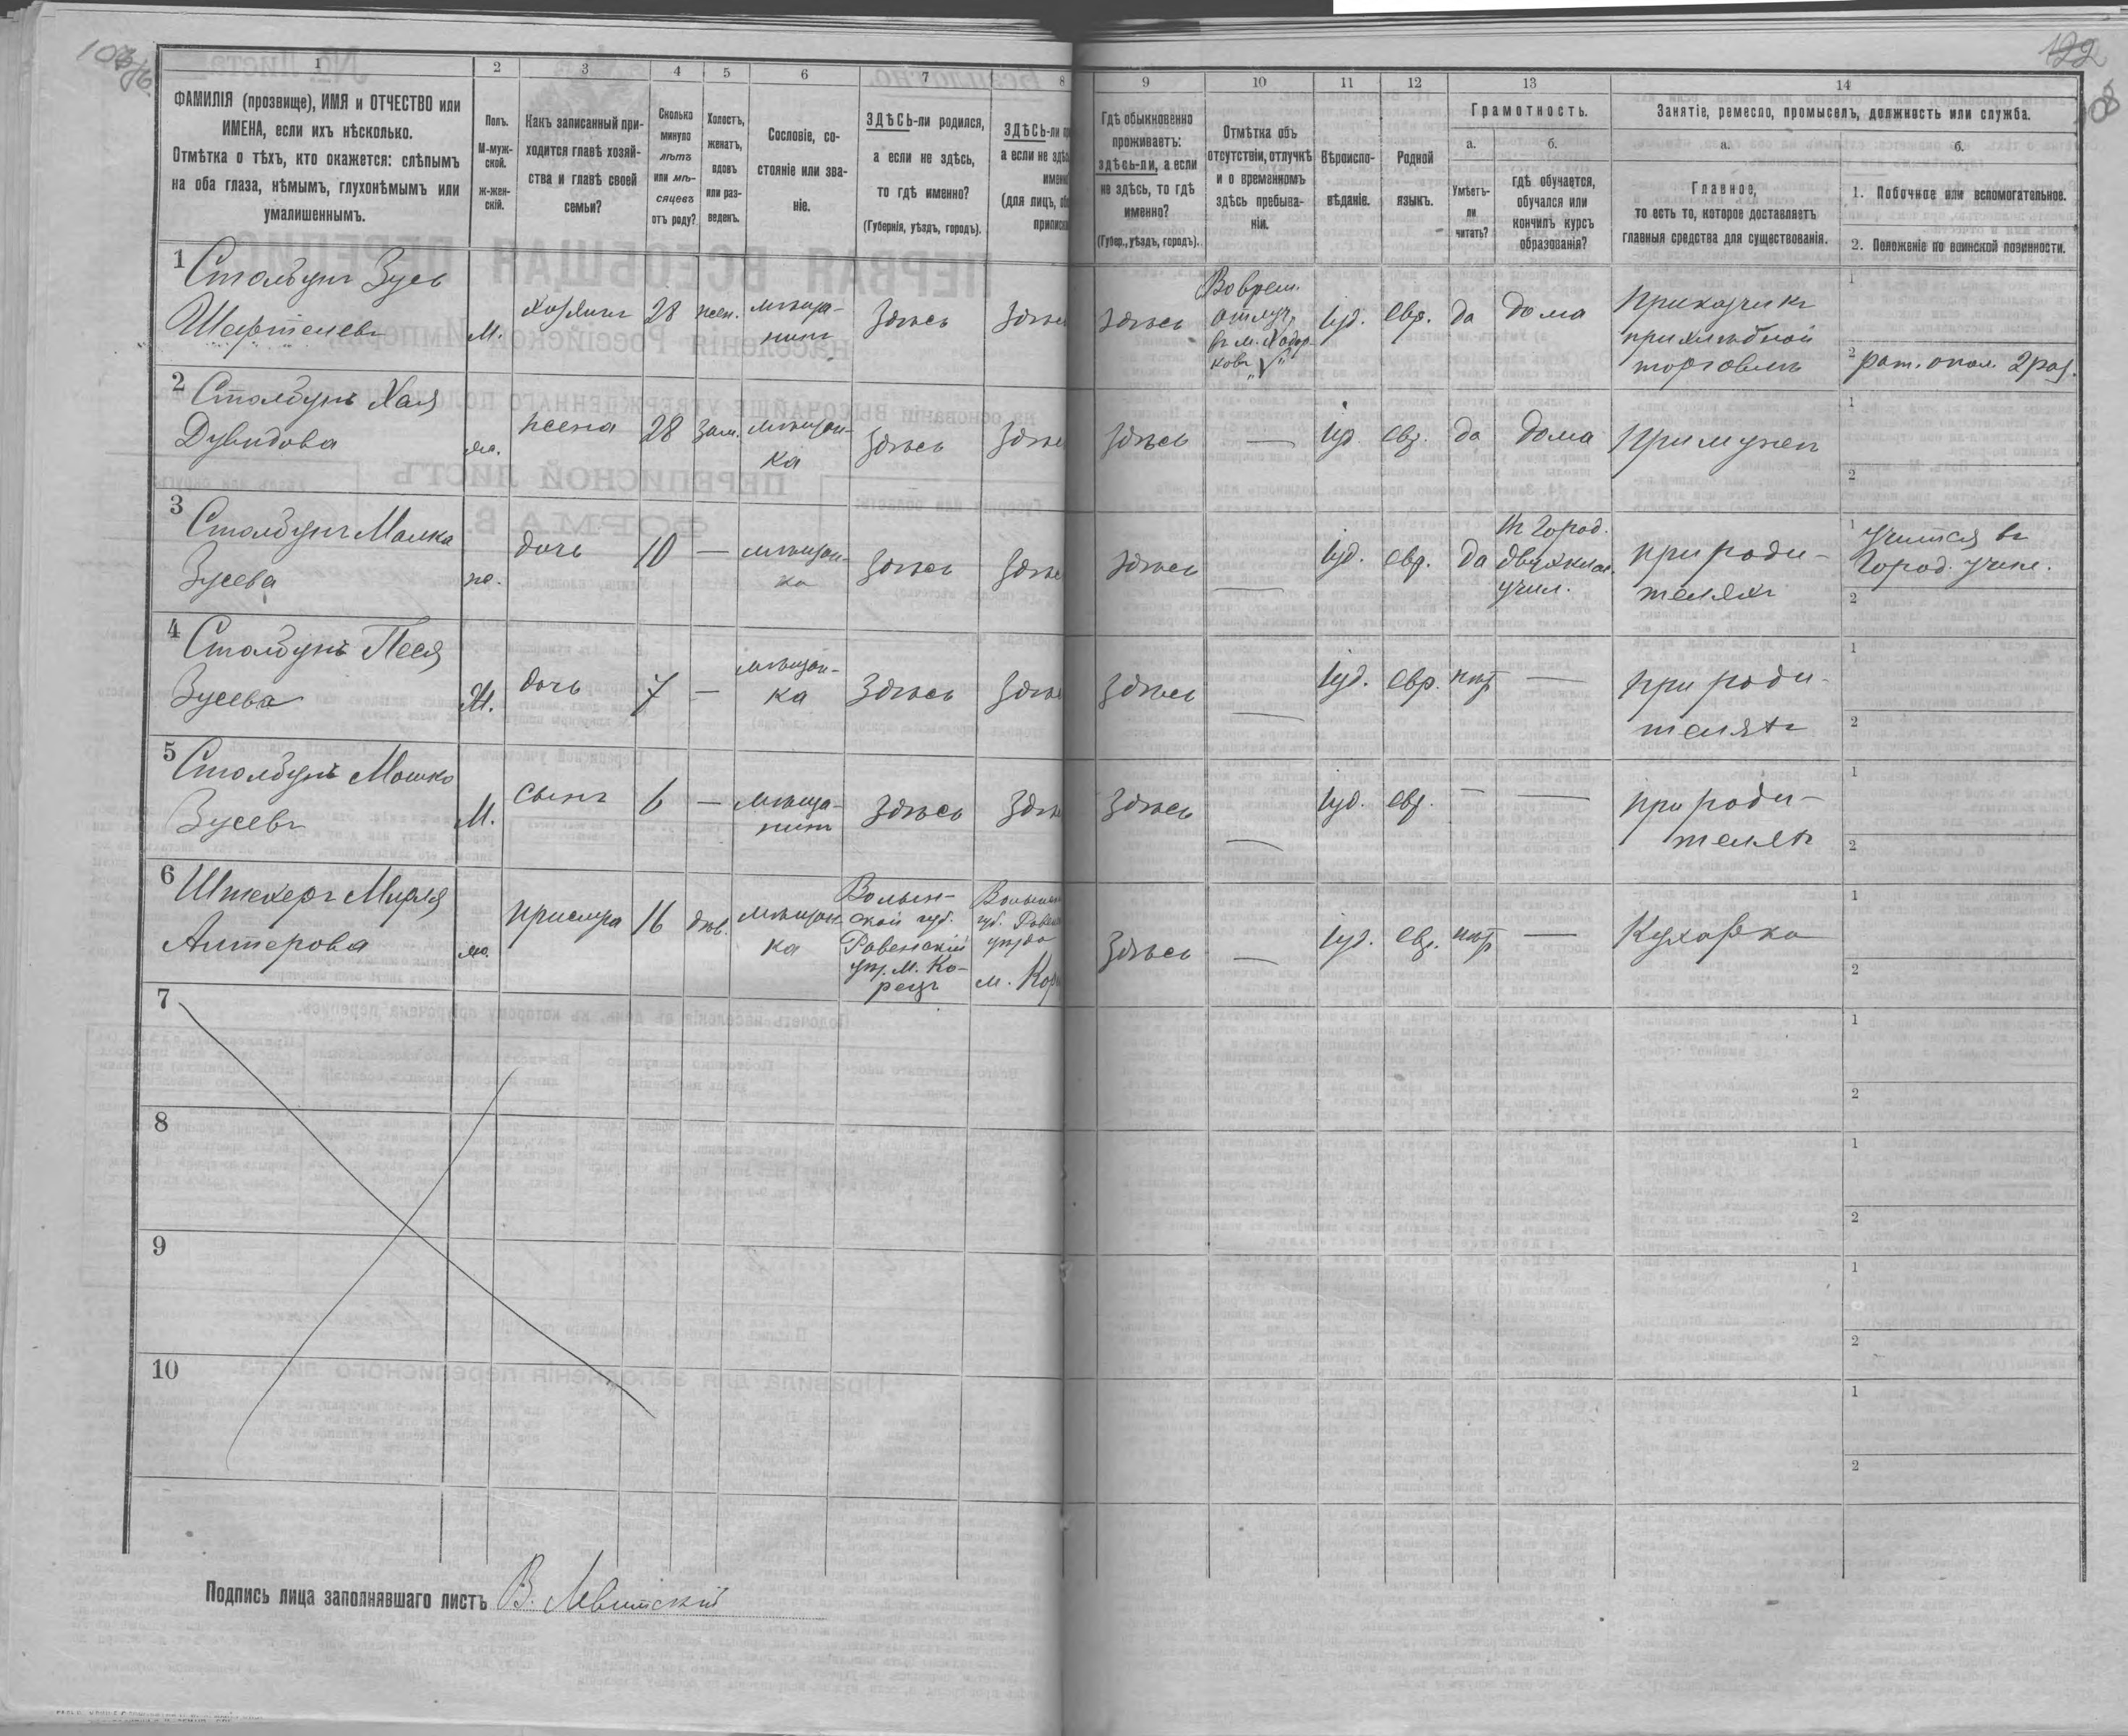 1
2
3
4
5
6
7
8
9
10
11
12
13
14
ФАМИЛІЯ (прозвище), ИМЯ и ОТЧЕСТВО или
ИМЕНА, если ихъ нѣсколько.
Отмѣтка о тѣхъ, кто окажется: слѣпымъ
на оба глаза, нѣмымъ, глухонѣмымъ или
умалишеннымъ.
Полъ.
М-муж-
ской.
ж-жен-
скій.
Какъ записанный при-
ходится главѣ хозяй-
ства и главѣ своей
семьи?
Сколько
минуло
лѣтъ
или мѣ-
сяцевъ
отъ роду?
Холостъ,
женатъ,
вдовъ
или раз-
веденъ.
Сословіе, со-
стояніе или зва-
ніе.
ЗДѢСЬ-ли родился,
а если не здѣсь,
то гдѣ именно?
(Губернія, уѣздъ, городъ).
ЗДѢСЬ-ли
а если не
(для лицъ,
Гдѣ обыкновенно
проживаетъ:
здѣсь-ли, а если
не здѣсь, то гдѣ
именно?
(Губер., уѣздъ, городъ).
Отмѣтка объ
отсутствіи, отлучкѣ
и о временномъ
здѣсь пребыва-
ніи.
Вѣроиспо-
вѣданіе.
Родной
языкъ.
Грамотность.
а.
Умѣетъ-
ли
читать?
б.
гдѣ обучается,
обучался или
кончилъ курсъ
образованія?
Занятіе, ремесло, промыселъ, должность или служба.
а.
Главное,
то есть то, которое доставляетъ
главныя средства для существованія.
б.
1. Побочное или вспомогательное.
2. Положеніе по воинской повинности.
1
Столбунъ Зусь
М.
хозяинъ
28
жен.
мѣща-
нинъ
Здѣсь
Здѣсь
Воврем.
отлуч.
въ м. Ходор
ковъ
Іуд.
евр.
да
дома
Приказчикъ
при хлѣбной
торговлѣ
1
2 рат. опол. 2 раз.
2
Столбунъ Хая
Дувидова
ж.
жена
28
зам.
мѣщан-
ка
Здѣсь
Здѣсь
—
Іуд.
евр.
да
дома
При мужѣ
1
2
3
Столбунъ Малка
Зусева
ж.
дочь
10
—
мѣщан-
ка
Здѣсь
Здѣсь
—
Іуд.
евр.
да
въ Город.
двухклас.
учил.
при роди-
теляхъ
1 учится въ
Город. учил.
2
4
Столбунъ Песя
Зусева
дочь
7
—
мѣщан-
ка
Здѣсь
Здѣсь
—
Іуд.
евр.
нѣт
—
при роди-
теляхъ
1
2
5
Столбунъ Мошко
Зусевъ
М.
сынъ
6
—
мѣща-
нинъ
Здѣсь
Здѣсь
—
Іуд.
евр.
—
—
при роди-
теляхъ
1
2
6
Штекеръ Мирля
Антерова
ж.
прислуга
16
дѣв.
мѣщан
ка
Волын-
ской губ.
Ровенскій
м. Ко-
рецъ
Здѣсь
—
Іуд.
евр.
нѣт
—
Кухарка
1
2
7
1
2
8
1
2
9
1
2
10
1
2
Подпись лица заполнявшаго листъ В. Левитскій